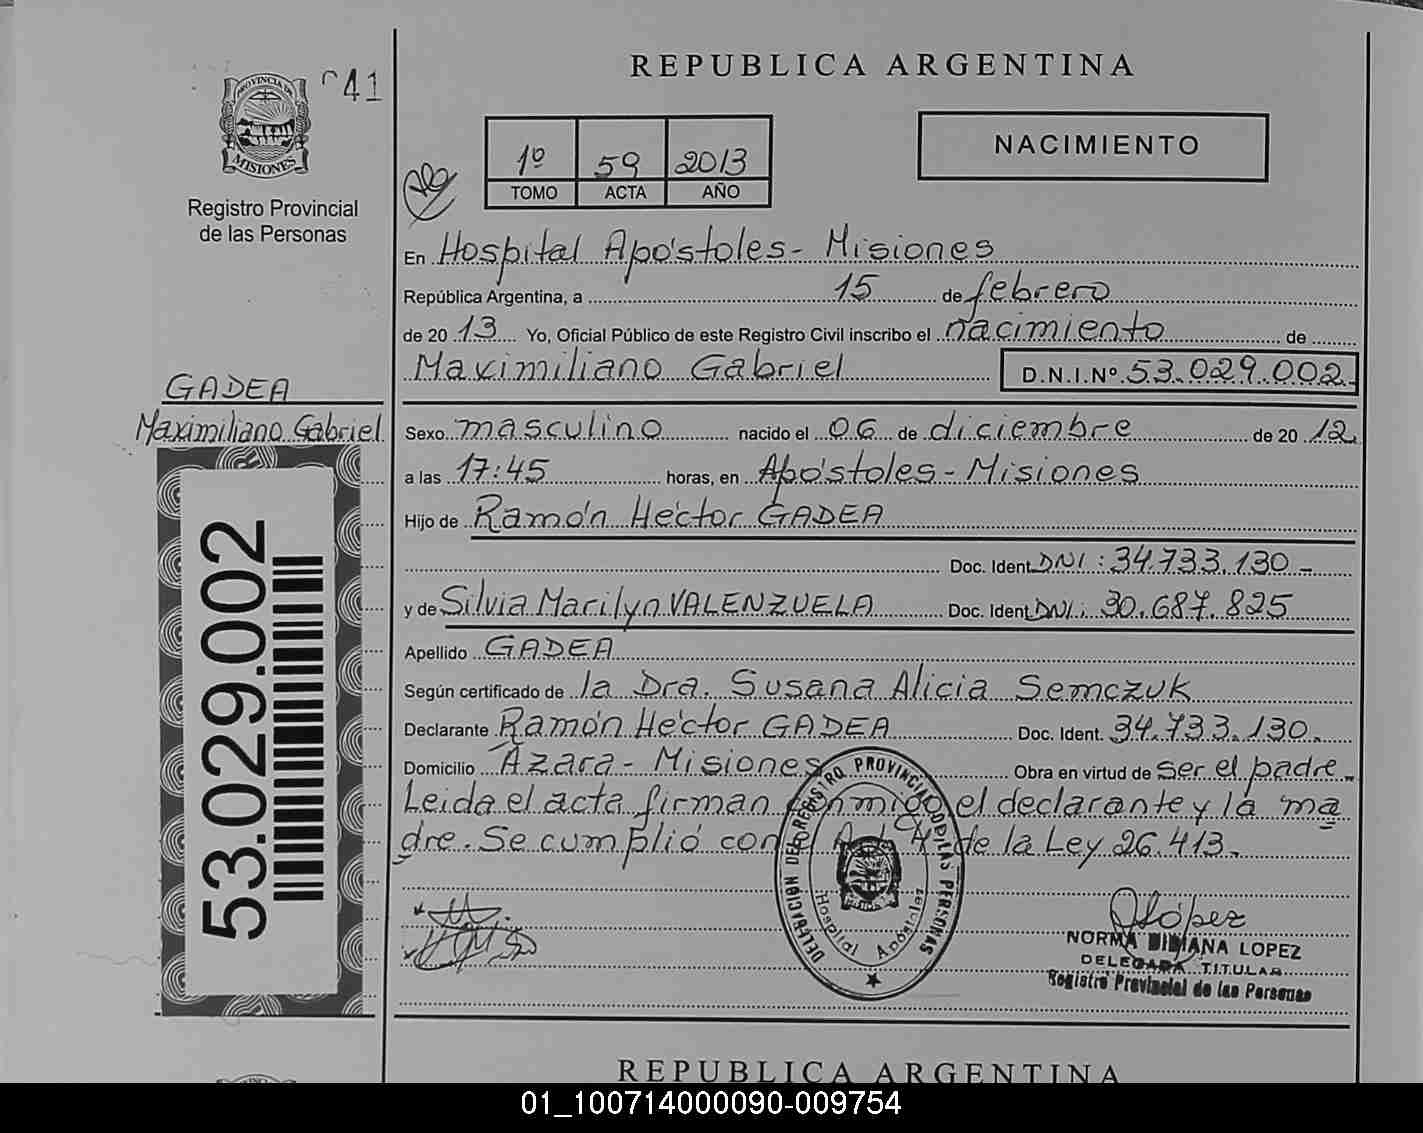 041
PROVINCIA DE
MISIONES
Registro Provincial
de las Personas
GADEA
Maximiliano Gabriel
53.029.002
REPUBLICA ARGENTINA
1º 59 2013
TOMO ACTA AÑO
NACIMIENTO
En Hospital Apóstoles - Misiones
República Argentina, a 15 de febrero
de 20 13 Yo, Oficial Público de este Registro Civil inscribo el nacimiento de
Maximiliano Gabriel D.N.I.Nº 53.029.002.
Sexo masculino nacido el 06 de diciembre de 20 12.
a las 17:45 horas, en Apóstoles - Misiones
Hijo de Ramón Héctor GADEA
Doc. Ident. DNI: 34.733.130 -
y de Silvia Marilyn VALENZUELA Doc. Ident. DNI: 30.687.825
Apellido GADEA
Según certificado de la Dra. Susana Alicia Semczuk
Declarante Ramón Héctor GADEA Doc. Ident. 34.733.130.
Domicilio Azara - Misiones Obra en virtud de ser el padre.
Leida el acta firman conmigo el declarante y la ma
dre. Se cumplió con Art. 4 de la Ley 26.413.
DELEGACION DEL REGISTRO PROVINCIAL DE LAS PERSONAS
Hospital Apóstoles
López
NORMA BIBIANA LOPEZ
DELEGADA TITULAR
Registro Provincial de las Personas
REPUBLICA ARGENTINA
01_100714000090-009754